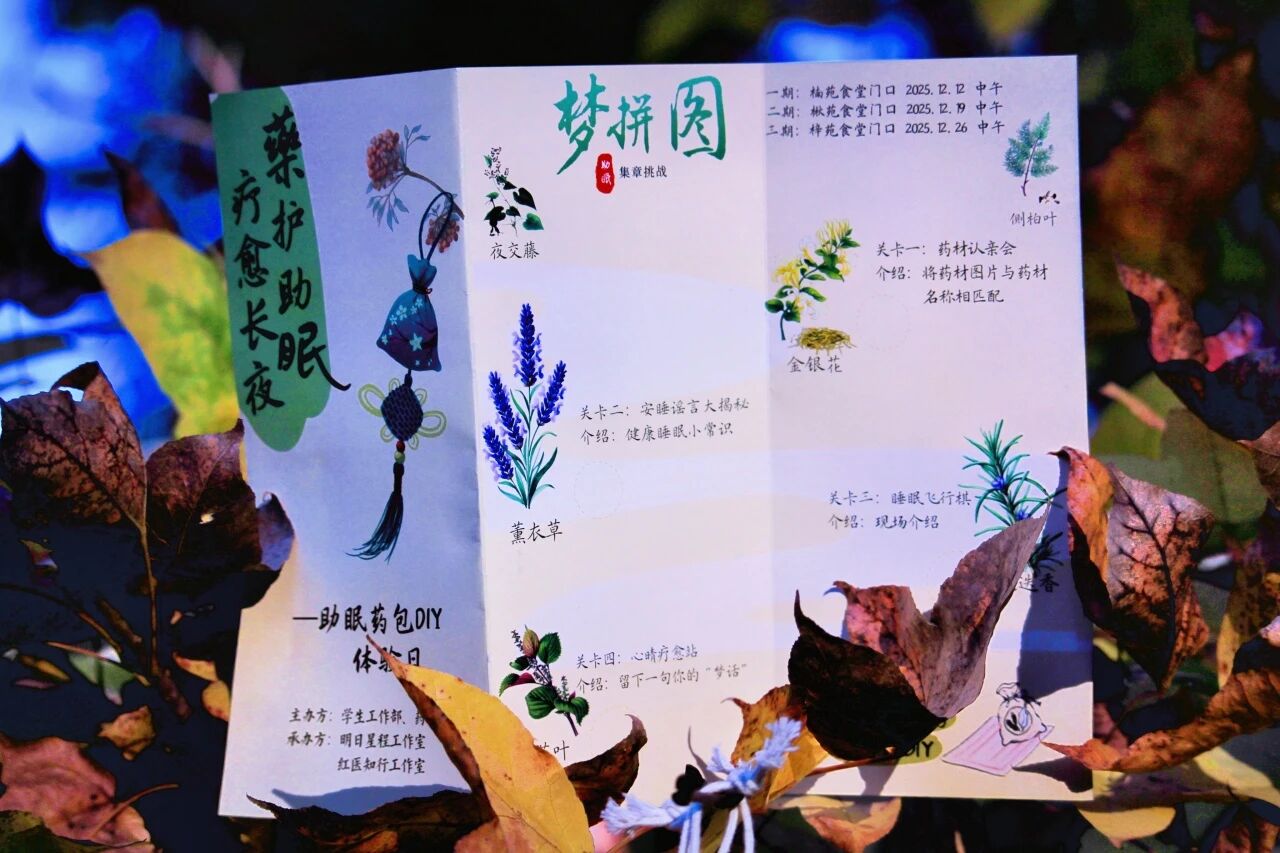 藥护助眠
疗愈长夜
—助眠药包DIY
体验日
主办方：学生工作部、药
承办方：明日星程工作室
红医知行工作室
梦拼图
助眠
集章挑战
夜交藤
薰衣草
关卡二：安睡谣言大揭秘
介绍：健康睡眠小常识
关卡四：心晴疗愈站
介绍：留下一句你的“梦话”
叶
一期：楠苑食堂门口 2025.12.12 中午
二期：楸苑食堂门口 2025.12.19 中午
三期：梓苑食堂门口 2025.12.26 中午
侧柏叶
关卡一：药材认亲会
介绍：将药材图片与药材
名称相匹配
金银花
关卡三：睡眠飞行棋
介绍：现场介绍
迭香
DIY